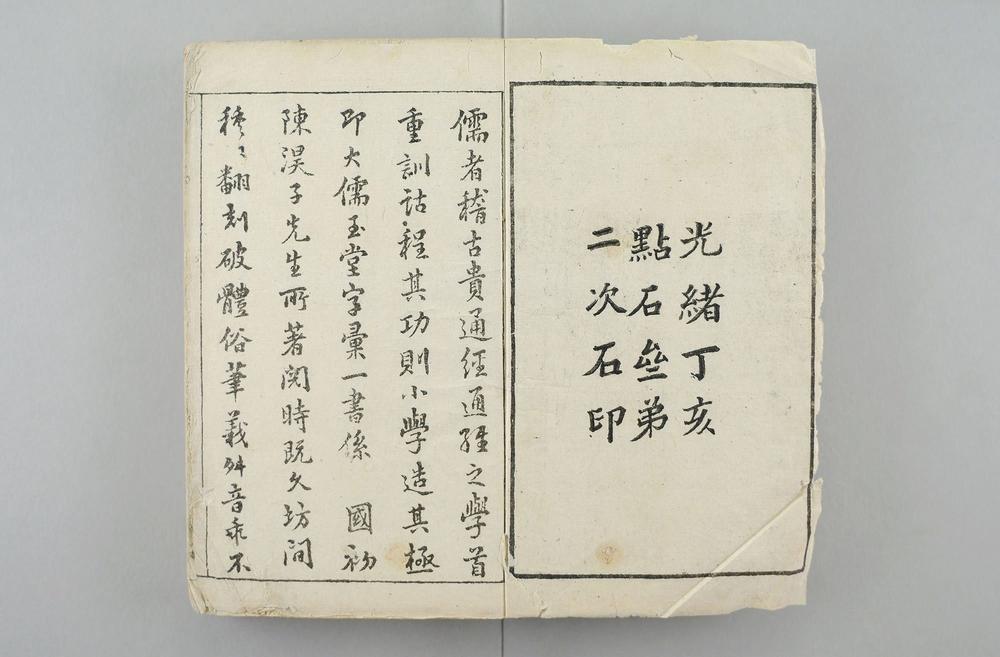 光緒丁亥
點石壘弟
二次石印
儒者稽古貴通經通經之學首
重訓詁程其功則小學造其極
即大儒玉堂字彙一書係 國初
陳淏子先生所著閱時既久坊間
種々翻刻破體俗筆義舛音乖不